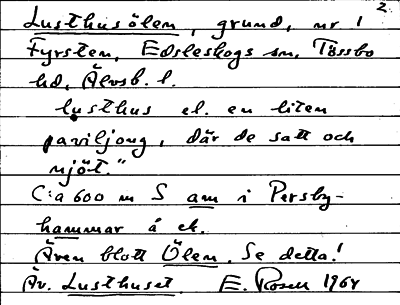 2
Lusthusölen, grund, nr 1
Fyrsten, Edsleskogs sn, Tössbo
hd, Älvsb. l.
"lusthus el. en liten
paviljong, där de satt och
njöt."
C:a 600 m S am i Persby-
hammar å ek.
Även blott Ölen. Se detta!
Äv. Lusthuset. E. Rosen 1964